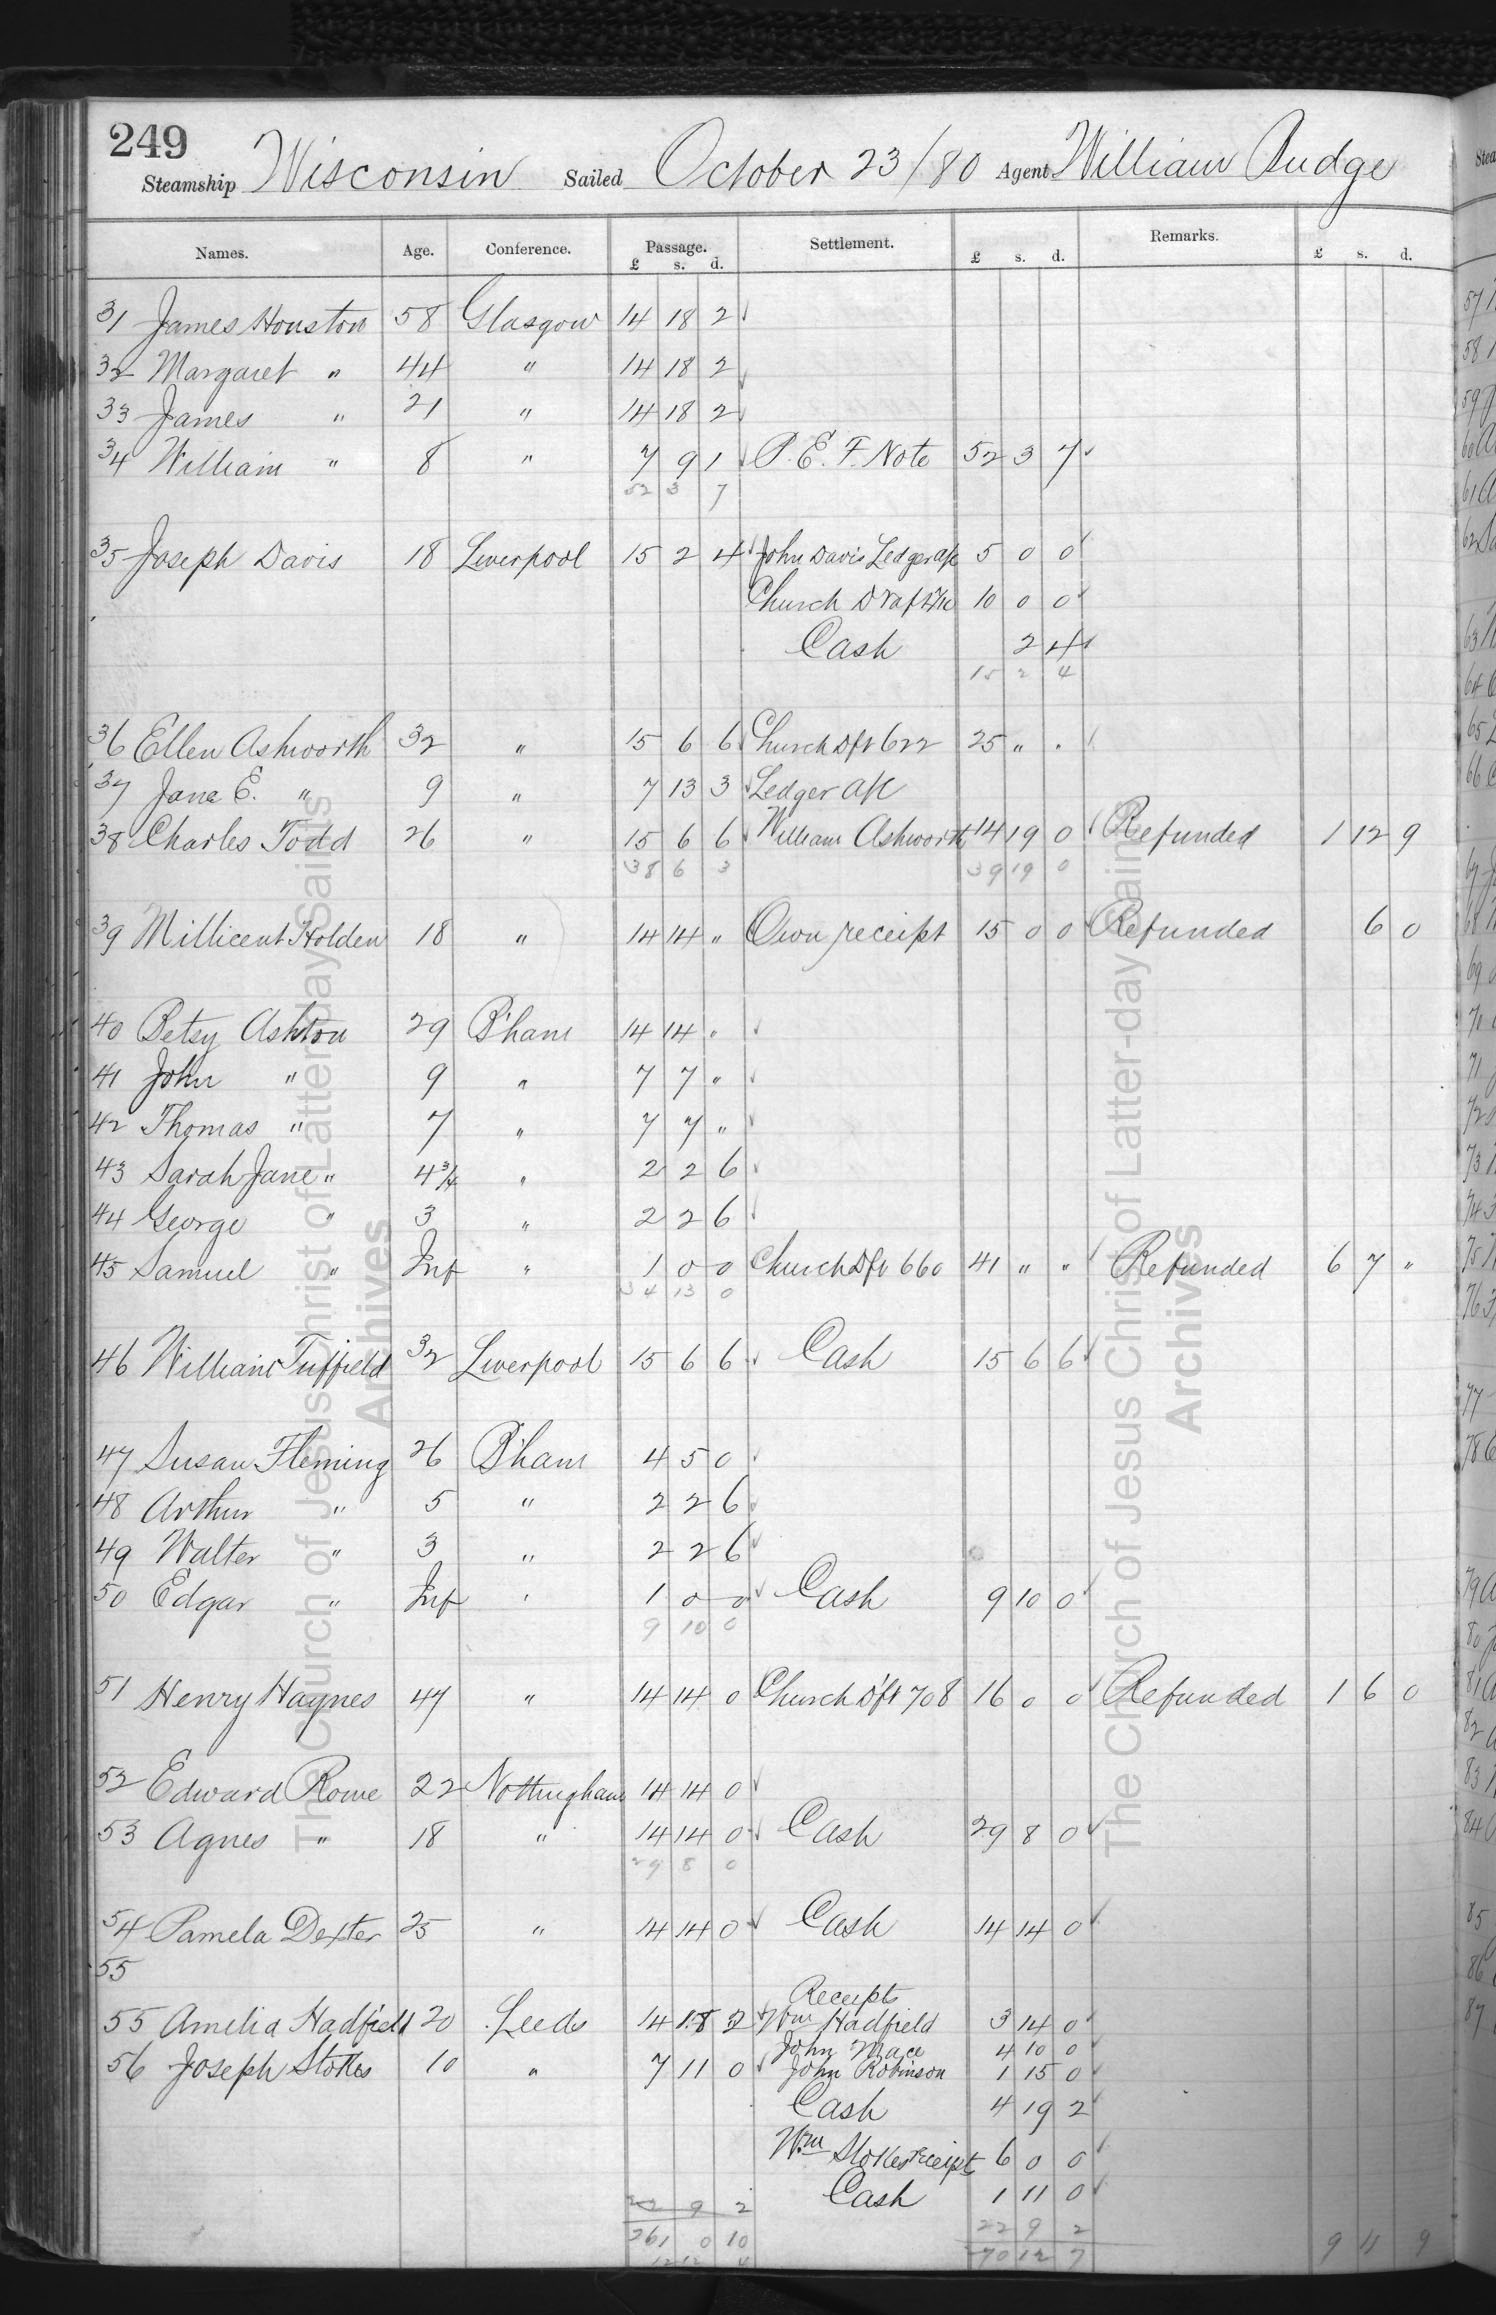 249
Steamship Wisconsin Sailed October 23/80 Agent William Budge
Names. Age. Conference. Passage. Settlement. Remarks.
£ s. d. £ s. d. £ s. d.
31 James Houston 58 Glasgow 14 18 2
32 Margaret " 44 " 14 18 2
33 James " 21 " 14 18 2
34 William " 8 " 7 9 1 P. E. F. Note 52 3 7
52 3 7
35 Joseph Davis 18 Liverpool 15 2 4 John Davis Ledger a/c 5 0 0
Church Draft 10 0 0
Cash 2 4
15 2 4
36 Ellen Ashworth 32 " 15 6 6 Church Dft 622 25 " "
37 Jane E. " 9 " 7 13 3 Ledger a/c
38 Charles Todd 26 " 15 6 6 William Ashworth 14 19 0 Refunded 1 12 9
38 6 3 39 19 0
39 Millicent Holden 18 " 14 14 " Own receipt 15 0 0 Refunded 6 0
40 Betsy Ashton 29 B'ham 14 14 "
41 John " 9 " 7 7 "
42 Thomas " 7 " 7 7 "
43 Sarah Jane " 4 3/4 " 2 2 6
44 George " 3 " 2 2 6
45 Samuel " Inf " 1 0 0 Church Dft 660 41 " " Refunded 6 7 "
34 13 0
46 William Tuffield 32 Liverpool 15 6 6 Cash 15 6 6
47 Susan Fleming 26 B'ham 4 5 0
48 Arthur " 5 " 2 2 6
49 Walter " 3 " 2 2 6
50 Edgar " Inf " 1 0 0 Cash 9 10 0
9 10 0
51 Henry Haynes 47 " 14 14 0 Church Dft 708 16 0 0 Refunded 1 6 0
52 Edward Rowe 22 Nottingham 14 14 0
53 Agnes " 18 " 14 14 0 Cash 29 8 0
29 8 0
54 Pamela Dexter 25 " 14 14 0 Cash 14 14 0
55
Receipts
55 Amelia Hadfield 20 Leeds 14 18 2 Wm Hadfield 3 14 0
John Mace 4 10 0
56 Joseph Stokes 10 " 7 11 0 John Robinson 1 15 0
Cash 4 19 2
Wm Stokes receipt 6 0 0
Cash 1 11 0
22 9 2 22 9 2
261 0 10 70 12 7 9 11 9
The Church of Jesus Christ of Latter-day Saints
Archives
The Church of Jesus Christ of Latter-day Saints
Archives